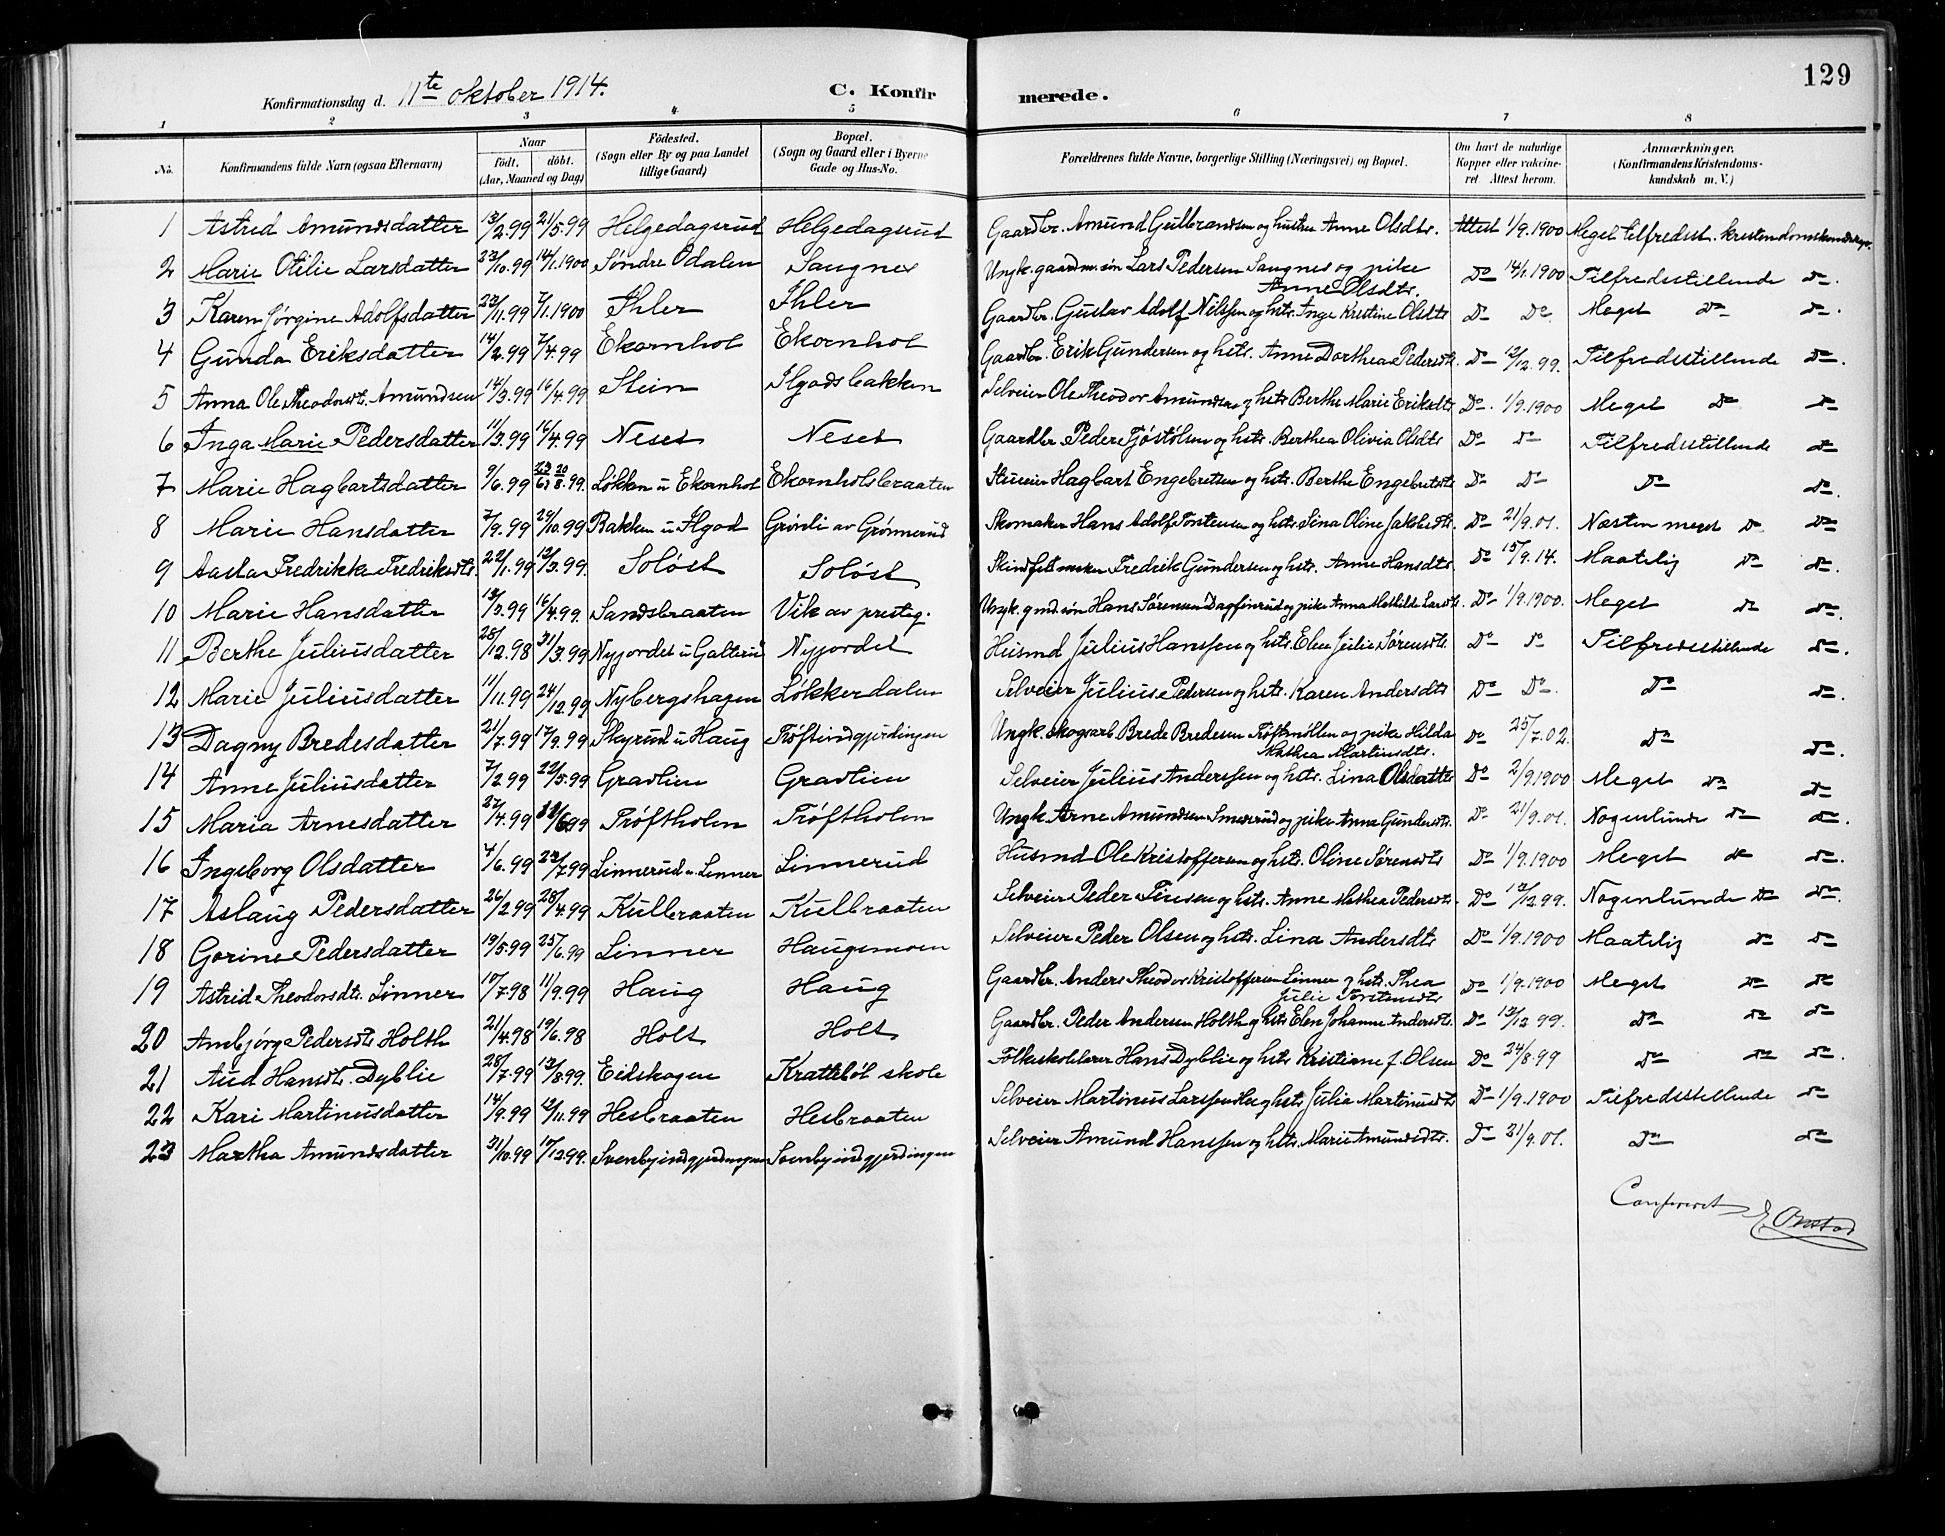 129
Konfirmationsdag d. 11te oktober 1914. C. Konfirmerede.
1 2 3 4 5 6 7 8
No. Konfirmandens fulde Navn (ogsaa Efternavn) Naar født. døbt. (Aar, Maaned og Dag) Fødested. (Sogn eller By og paa Landet tillige Gaard) Bopæl. (Sogn og Gaard eller i Byerne Gade og Hus-No. Forældrenes fulde Navne, borgerlige Stilling (Næringsvei) og Bopæl. Om havt de naturlige Kopper eller vakcineret. Attest herom. Anmærkninger. (Konfirmandens Kristendomskundskab m. V.)
1 Astrid Amundsdatter 13/2.99 21/5.99 Helgedagsrud Helgedagsrud Gaardbr. Amund Gulbrandsen og hustru Anne Olsdtr. Attest 1/9.1900 Meget tilfredsst. kristendomskundskap.
2 Marie Otilie Larsdatter 23/10.99 14/1.1900 Søndre Odalen Saugnes Ungk. gaardm.søn Lars Pedersen Saugnes og pike Anne Olsdtr. Do 14/1 1900 Tilfredsstillende do.
3 Karen Jørgine Adolfsdatter 22/11.99 7/1.1900 Ihler Ihler Gaardbr. Gustav Adolf Nilssen og hstr. Inge Kristine Olsdtr Do Do. Meget do do.
4 Gunda Eriksdatter 14/2.99 7/4.99 Ekornhol Ekornhol Gaardbr. Erik Gundersen og hstr. Anne Dorthea Pedersdtr. Do 12/12.99. Tilfredsstillende do.
5 Anna Ole Theodorsdtr. Amundsen 14/3.99 16/4.99 Stein Ilgodsbakken Selveier Ole Theodor Amundsen og hstr Berthe Marie Eriksdtr Do. 1/9.1900 Meget do do
6 Inga Marie Pedersdatter 11/3.99 16/4.99 Neset Neset Gaardbr. Peder Tjøstolsen og hstr. Berthea Olivia Olsdtr Do do Tilfredsstillende do
7 Marie Hagbartsdatter 9/6.99 23/6 20/8.99. Løkken u Ekornhol Ekornholsbraaten Hagbart Engebretsen og hstr. Berthe Engebretsdtr Do do do do.
8 Marie Hansdatter 7/9.99 29/10.99 Bakken u Ilgod Grønli av Grønnerud Skomaker Hans Adolf Torstensen og hstr. Lina Oline Jakobsdtr. Do 21/9.01. Næsten meget do. do
9 Aasta Fredrikke Fredriksdtr. 22/1.99 12/3.99. Soløst Soløst Fredrik Gundersen og hstr. Anne Hansdtr. do 15/9.14. Maatelig do do.
10 Marie Hansdatter 13/3.99 16/4.99. Sandsbraaten Vik av presteg. Ungk. gmd.søn Hans Sørensen Dagfinrud og pike Anna Mathilde Larsdtr. Do 1/9.1900. Meget do do.
11 Berthe Juliusdatter 28/12.98 31/3.99 Nyjordet u Galterud Nyjordet Husmd Julius Hanssen og hstr. Elen Julie Sørensdtr. Do do Tilfredsstillende do.
12 Marie Juliusdatter 11/11.99 24/12.99 Nybergshagen Løkkerdalen Selveier Julius Pedersen og hstr. Karen Andersdtr Do Do. do do.
13 Dagny Bredesdatter 21/7.99 17/9.99 Skyrud u Haug Trøftindgjerdingen Ungk. skogsarb Brede Bredesen Trøftmøllen og pike Hilda Mathea Martinsdtr. do 25/7.02. do do.
14 Anne Juliusdatter 7/2 99 22/5.99 Gravlien Gravlien Selveier Julius Anderssen og hstr. Lina Olsdatter Do 2/9.1900 Meget do do
15 Maria Arnesdatter 27/4.99 11/6.99 Trøftholen Trøftholen Ungk. Arne Amundsen Smærud og pike Anna Gundersdtr. Do 21/9.01. Nogenlunde do do.
16 Ingeborg Olsdatter 4/6.99 23/7.99 Linnerud u. Linner Linnerud Husmd Ole Kristoffersen og hstr. Oline Sørensdtr Do 1/9.1900 Meget do do.
17 Aslaug Pedersdatter 26/2.99 28/4.99 Kulbraaten Kulbraaten Selveier Peder og hstr. Anne Mathea Pedersdtr. Do 12/12.99. Nogenlunde do do.
18 Gorine Pedersdatter 19/5.99 25/6.99 Linner Haugsmoen Selveier Peder Olsen og hstr. Lina Andersdtr Do 1/9.1900 Maatelig do do
19 Astrid Theodorsdtr. Linner 10/7.98 11/9.99 Haug Haug Gaardbr. Anders Theodor Kristoffersen Linner og hstr. Thea Julie Torstensdtr Do 1/9.1900 Meget do do
20 Ambjørg Pedersdtr Holth 21/4.98 19/6.98 Holt Holt Gaardbr. Peder Andersen Holth og hstr Elen Johanne Andersdtr. Do 12/12 99. do do do
21 Aud Hansdtr. Dyblie 28/7.99 13/8.99. Eidskogen Krattebøl skole Folkeskolelærer Hans Dyblie og hstr Kristiane f. Olsen Do 24/8.99 do do do.
22 Kari Martinusdatter 14/9.99 12/11.99 Hesbraaten Hesbraaten Selveier Martinus Larssen og hstr. Julia Martinusdtr Do 1/9.1900 Tilfredsstillende do
23 Martha Amundsdatter 31/10.99 17/12.99. Svenbyindgjerdingen Svenbyindgjerdingen Selveier Amund Hanssen og hstr. Marie Amundsdtr. Do 21/9.01. do do
Confereret